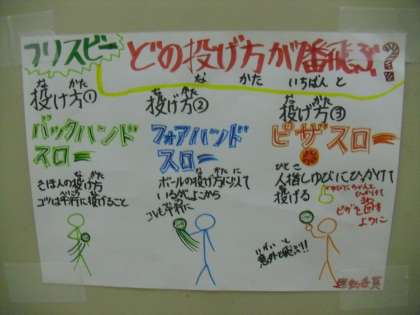 フリスビー どの投げ方が一番飛ぶ?
投げ方①
なかた
バックハンド
スロー
きほんの投げ方
コツは平行に投げること
なかた
投げ方②
フォアハンド
スロー
ボールの投げ方に似て
いるがよこから
いちばんと
投げ方③
ピザスロー
人指しゆびにひっかけて
投げる
ピザを回す
ように
意外と飛ぶ!!